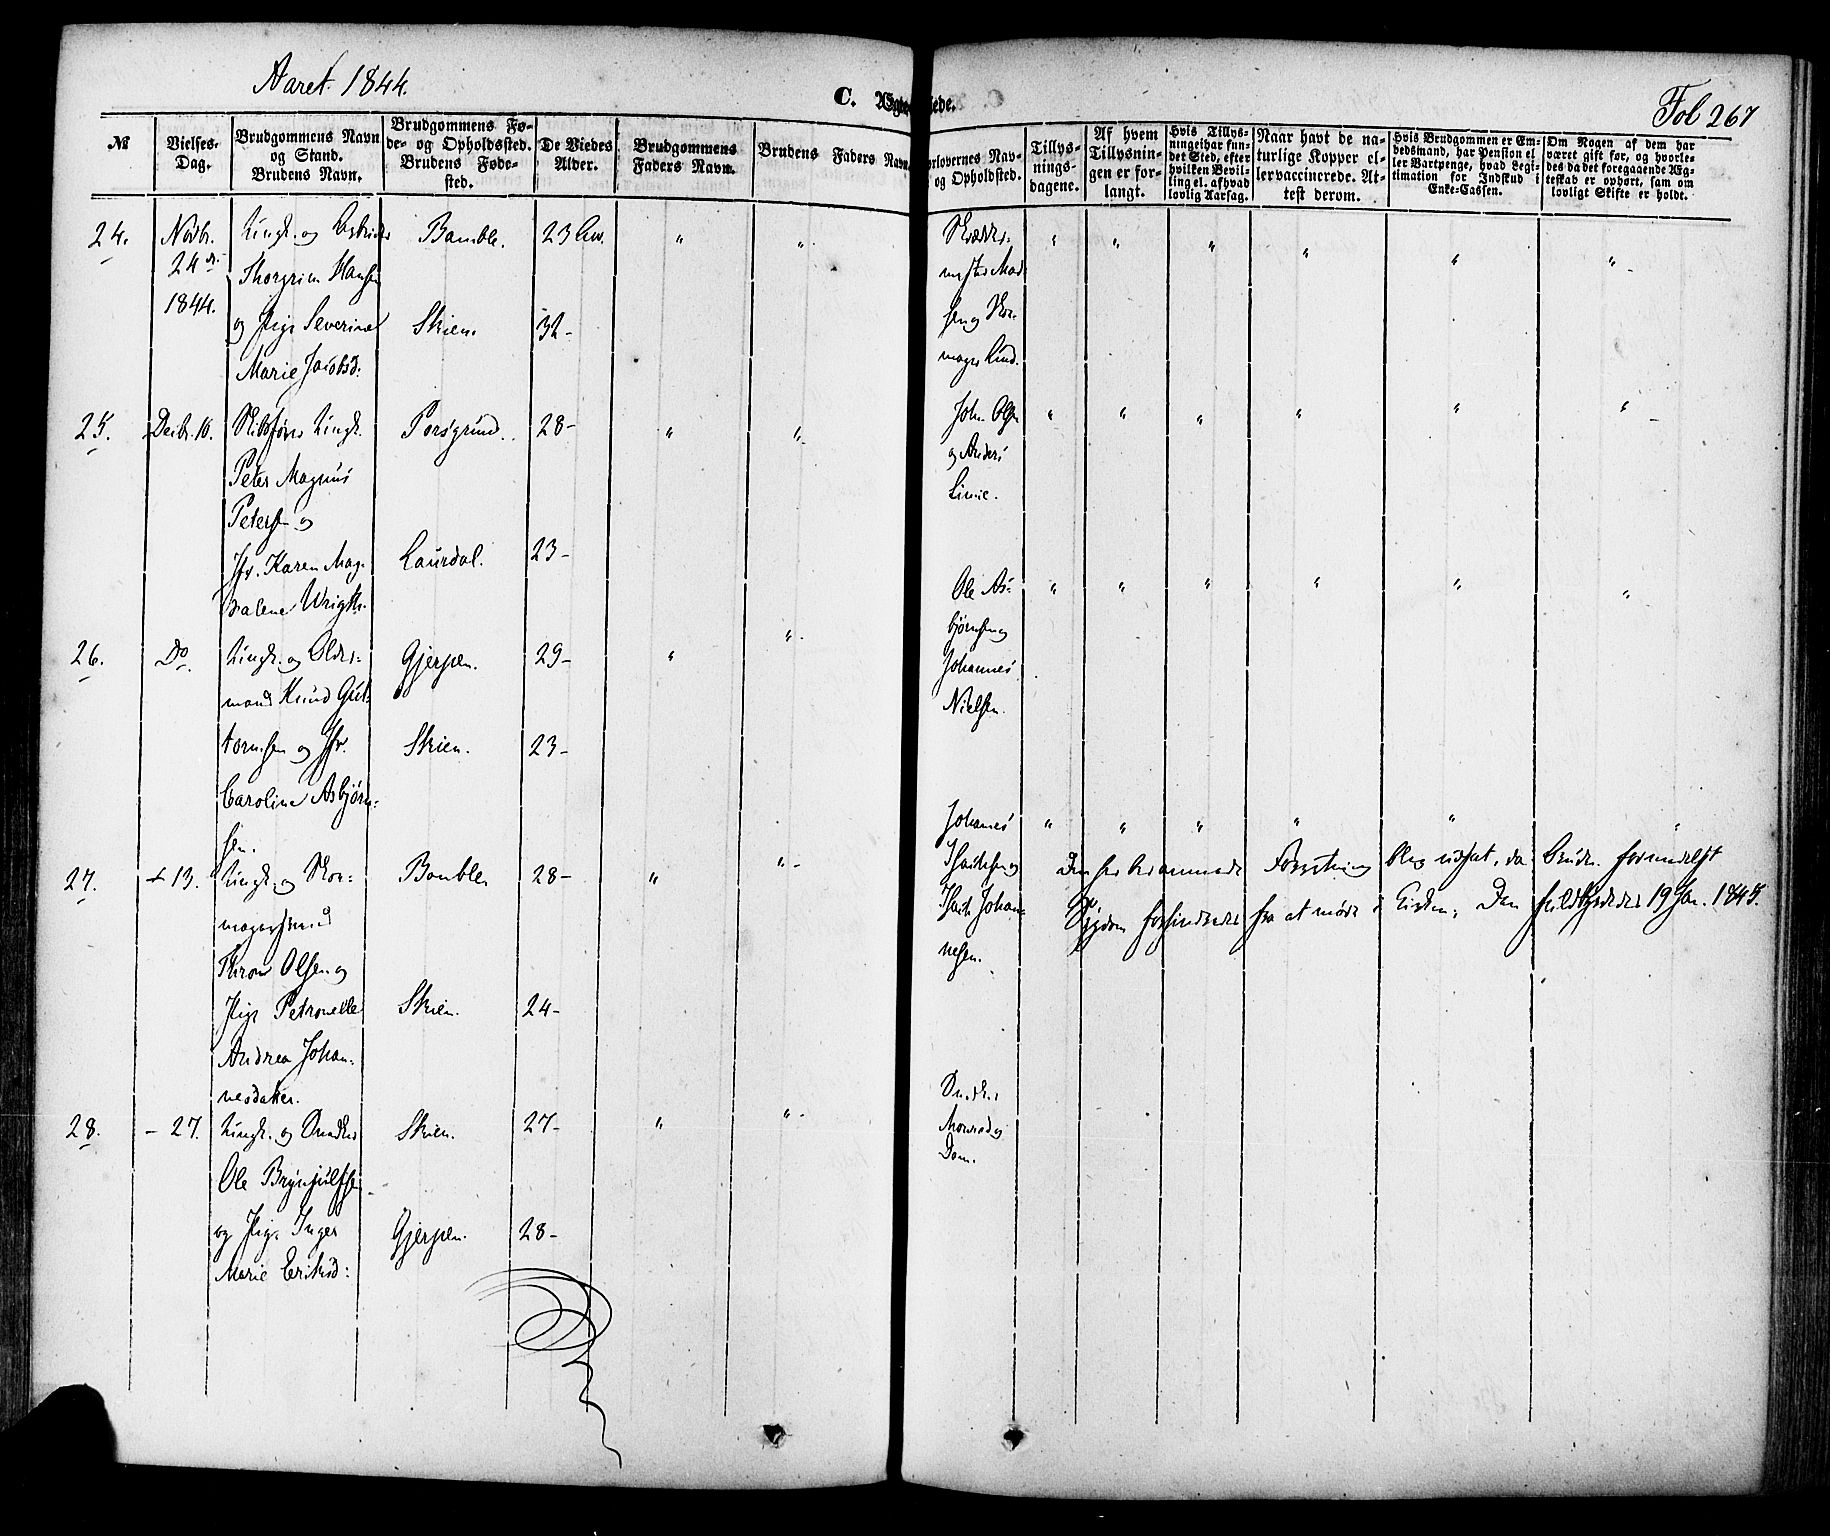 Aaret 1844.
C. Ægteviede.
Fol 267
№
Vielses-
Dag.
Brudgommens Navn
og Stand.
Brudens Navn.
Brudgommens Fø-
de- og Opholdssted.
Brudens Føde-
sted.
De Viedes
Alder.
Brudgommens
Faders Navn.
Brudens Faders Navn.
orlovernes Nav-
og Opholdssted.
Tillys-
nings-
dagene.
Af hvem
Tillysnin-
gen er for-
langt.
Hvis Tillys-
ning ei har fun-
det Sted, efter
hvilken Bevil-
ling el. af hvad
lovlig Aarsag.
Naar havt de na-
turlige Kopper el-
ler vaccinerede. At-
test derom.
Hvis Brudgommen er Em-
bedsmand, har Pension el
ler Vartpenge, hvad Legi-
timation for Indskud i
Enke-Cassen.
Om Nogen af dem har
været gift før, og hvorle-
des da det foregaaende Æg-
teskab er ophørt, sam om
lovligt Skifte er holdt.
24.
Novbr.
24
1844.
Ungk. og
Thorgrim Hansen
og Pige Severine
Marie Jacobsd:
Bamble.
Skien.
23
32-
Mad
sen og Sko-
mager Lund.
25.
Decbr. 10.
Ungk.
Peter Magnus
Peters og
Jfr. Karen Mag-
dalene Wrigth.
Porsgrund.
Laurdal.
28-
23-
John Olsen
og Anders
Linie.
26.
Do
Ungk. og Older-
mand Knud Gut-
tormsen og Jfr.
Caroline Asbjørn-
sen.
Gjerpen.
Skien.
29-
23-
Ole As-
bjørnsen og
Johannes
Nielsen.
27.
13.
Ungk. og Sko-
magersvend
Thron Olsen og
Pige Petronelle
Andrea Johan-
nesdatter.
Bamble
Skien.
28-
24-
Johanes
Isaksen og
Isak Johan-
nesen.
Den her berammede Forretning blev udsat, da Bruden formedelst
Sygdom forhindredes fra at møde i Kirken; Den fuldbyrdedes 19 Jan. 1845.
28.
- 27.
Ungk. og Snedker
Ole Brynjulfsen
og Pige Inger
Marie Eriksd:
Skien.
Gjerpen.
27-
28-
Snedker
Monrad og
Dom.